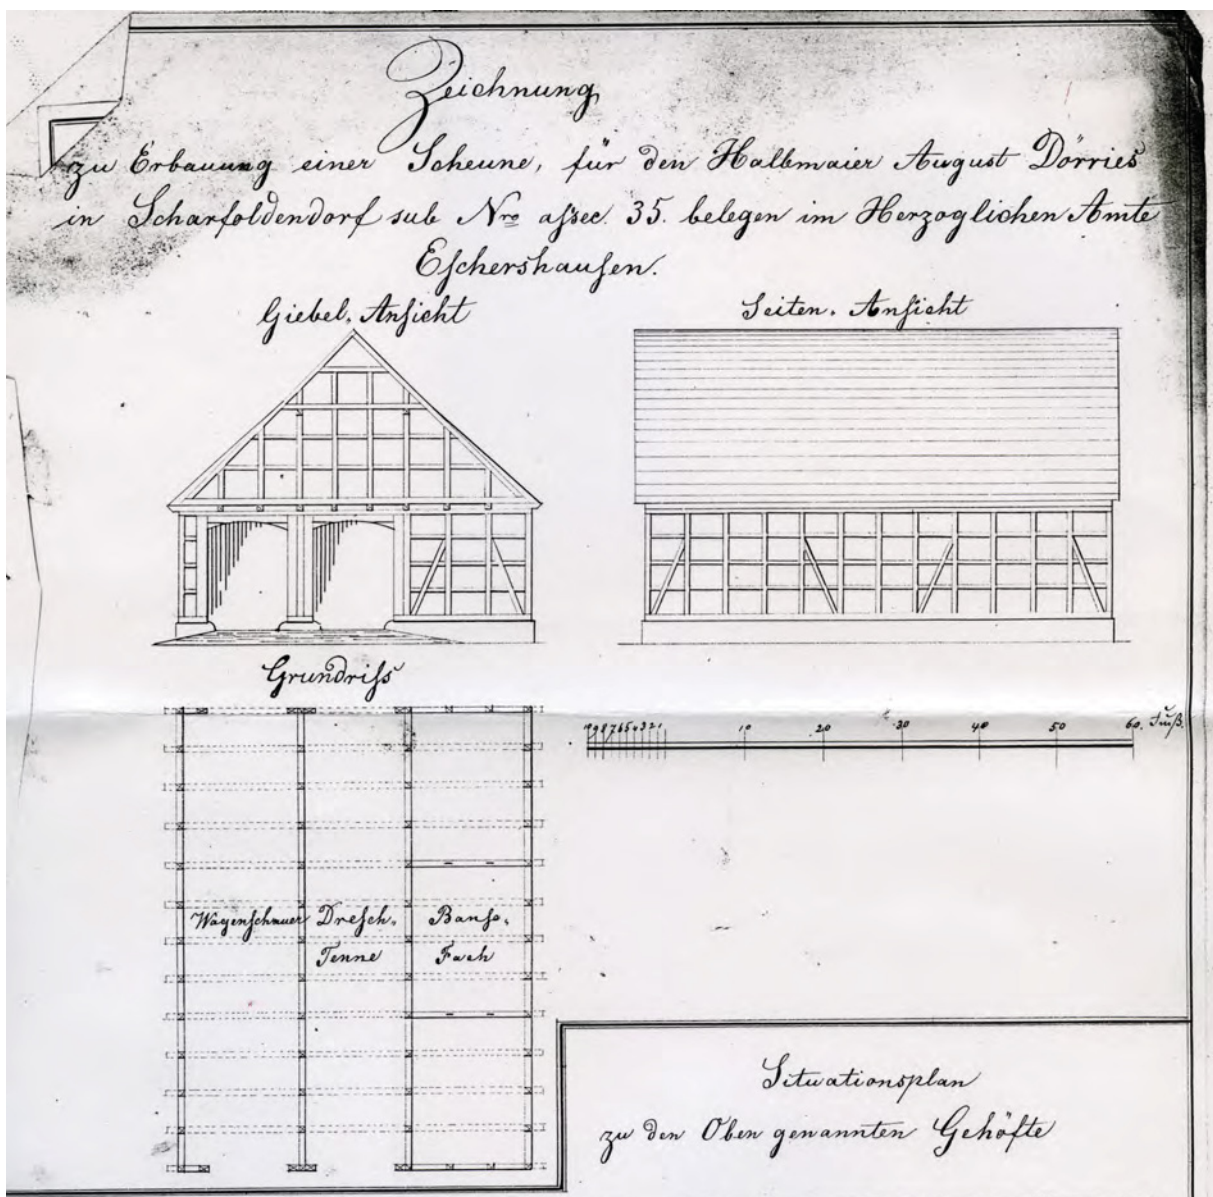 Zeichnung
zu Erbauung einer Scheune, für den Halbmaier August Dörries
in Scharfoldendorf sub Nro assec. 35. belegen im Herzoglichen Amte
Eschershausen.
Giebel-Ansicht
Seiten-Ansicht
Grundriss
10 9 8 7 6 5 4 3 2 1 10 20 30 40 50 60. Fuß.
Wagenschauer Dresch- Banse-
Tenne Fach
Situationsplan
zu den Oben genannten Gehöfte